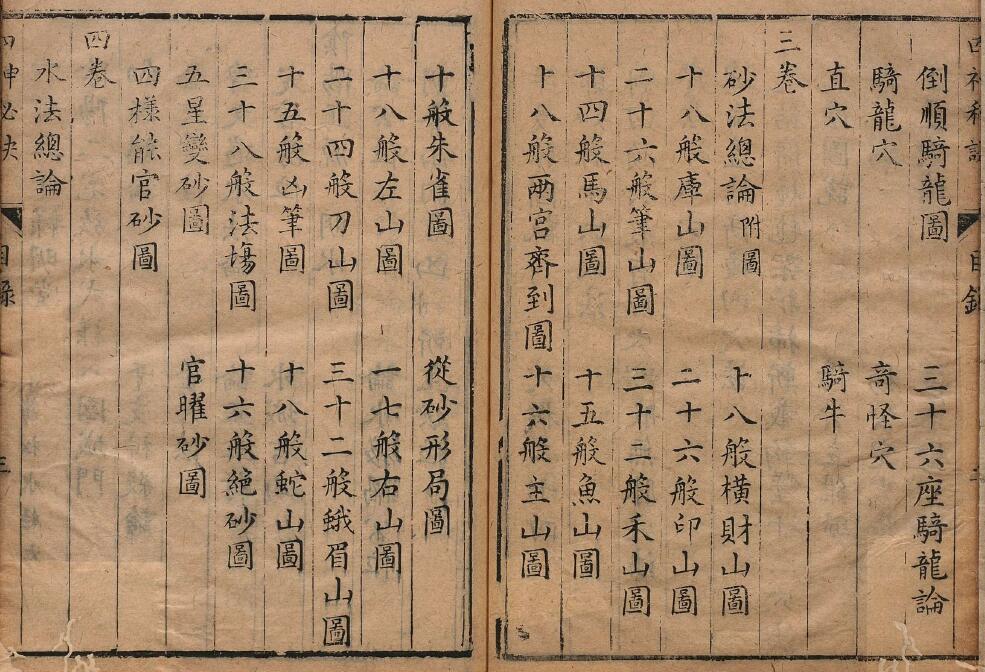 四神秘訣 目錄 二
倒順騎龍圖 三十六座騎龍論
騎龍穴 奇怪穴
直穴 騎牛
三卷
砂法總論附圖 十八般橫財山圖
十八般庫山圖 二十六般印山圖
二十六般筆山圖 三十二般禾山圖
十四般馬山圖 十五般魚山圖
十八般兩宮齊到圖 十六般主山圖
十般朱雀圖 從砂形局圖
十八般左山圖 一七般右山圖
二十四般刀山圖 三十二般蛾眉山圖
十五般凶筆圖 十八般蛇山圖
三十八般法塲圖 十六般絕砂圖
五星變砂圖 官曜砂圖
四樣能官砂圖
四卷
水法總論
四神必決 目錄 三